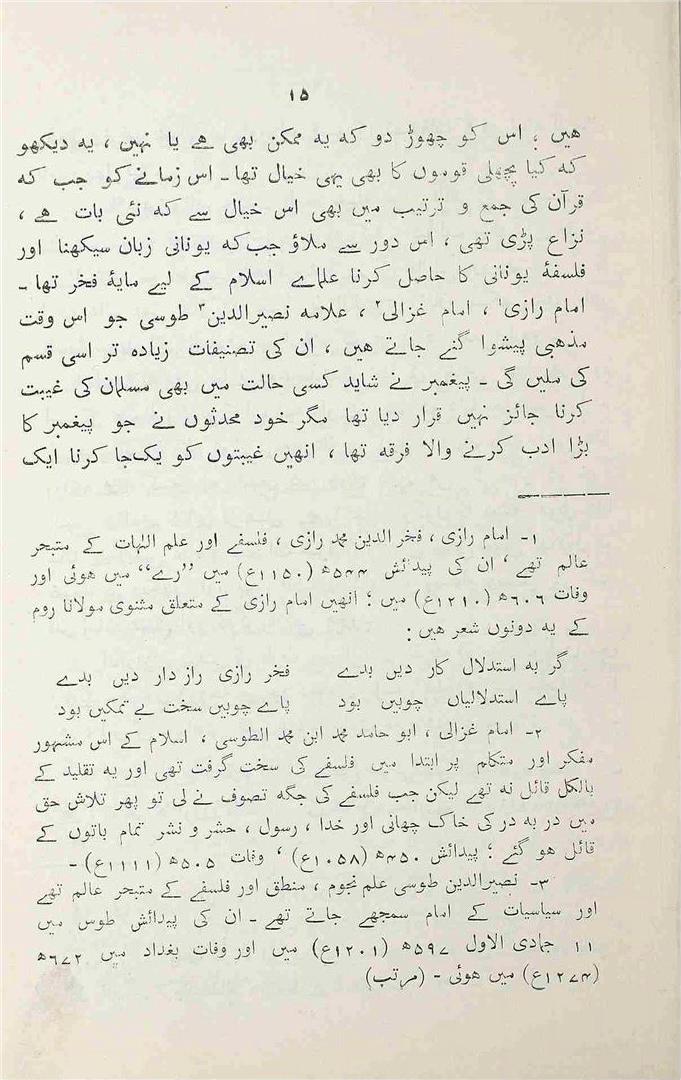 ۱۵
ھیں ؛ اس کو چھوڑ دو کہ یہ ممکن بھی ہے یا نہیں ، یہ دیکھو
کہ کیا پچھلی قوموں کا بھی یہی خیال تھا۔ اس زمانے کو جب کہ
قرآن کی جمع و ترتیب میں بھی اس خیال سے کہ نئی بات ہے ،
نزاع پڑی تھی ، اس دور سے ملاؤ جب کہ یونانی زبان سیکھنا اور
فلسفۂ یونانی کا حاصل کرنا علماے اسلام کے لیے مایۂ فخر تھا ۔
امام رازی۱ ، امام غزالی۲ ، علامہ نصیرالدین۳ طوسی جو اس وقت
مذھبی پیشوا گنے جاتے ھیں ، ان کی تصنیفات زیادہ تر اسی قسم
کی ملیں گی ۔ پیغمبر نے شاید کسی حالت میں بھی مسلمان کی غیبت
کرنا جائز نہیں قرار دیا تھا مگر خود محدثوں نے جو پیغمبر کا
بڑا ادب کرنے والا فرقہ تھا ، انھیں غیبتوں کو یک جا کرنا ایک
۱۔ امام رازی ، فخر الدین محمد رازی ، فلسفے اور علم الٰہات کے متبحر
عالم تھے ‘ ان کی پیدائش ۵۴۴ھ (۱۱۵۰ع) میں ’’رے‘‘ میں ھوئی اور
وفات ۶۰۶ھ (۱۲۱۰ع) میں ؛ انھیں امام رازی کے متعلق مثنوی مولانا روم
کے یہ دونوں شعر ھیں :
گر بہ استدلال کار دیں بدے فخر رازی راز دار دیں بدے
پاے استدلالیاں چوبیں بود پاے چوبیں سخت بے تمکیں بود
۲۔ امام غزالی ، ابو حامد محمد ابن محمد الطوسی ، اسلام کے اس مشہور
مفکر اور متکلم پر ابتدا میں فلسفے کی سخت گرفت تھی اور یہ تقلید کے
بالکل قائل نہ تھے لیکن جب فلسفے کی جگہ تصوف نے لی تو پھر تلاش حق
میں در بہ در کی خاک چھانی اور خدا ، رسول ، حشر و نشر تمام باتوں کے
قائل ھو گئے ؛ پیدائش ۴۵۰ھ (۱۰۵۸ع) ‘ وفات ۵۰۵ھ (۱۱۱۱ع) ۔
۳۔ نصیرالدین طوسی علم نجوم ، منطق اور فلسفے کے متبحر عالم تھے
اور سیاسیات کے امام سمجھے جاتے تھے ۔ ان کی پیدائش طوس میں
۱۱ جمادی الاول ۵۹۷ھ (۱۲۰۱ع) میں اور وفات بغداد میں ۶۷۲ھ
(۱۲۷۴ع) میں ھوئی ۔ (مرتب)